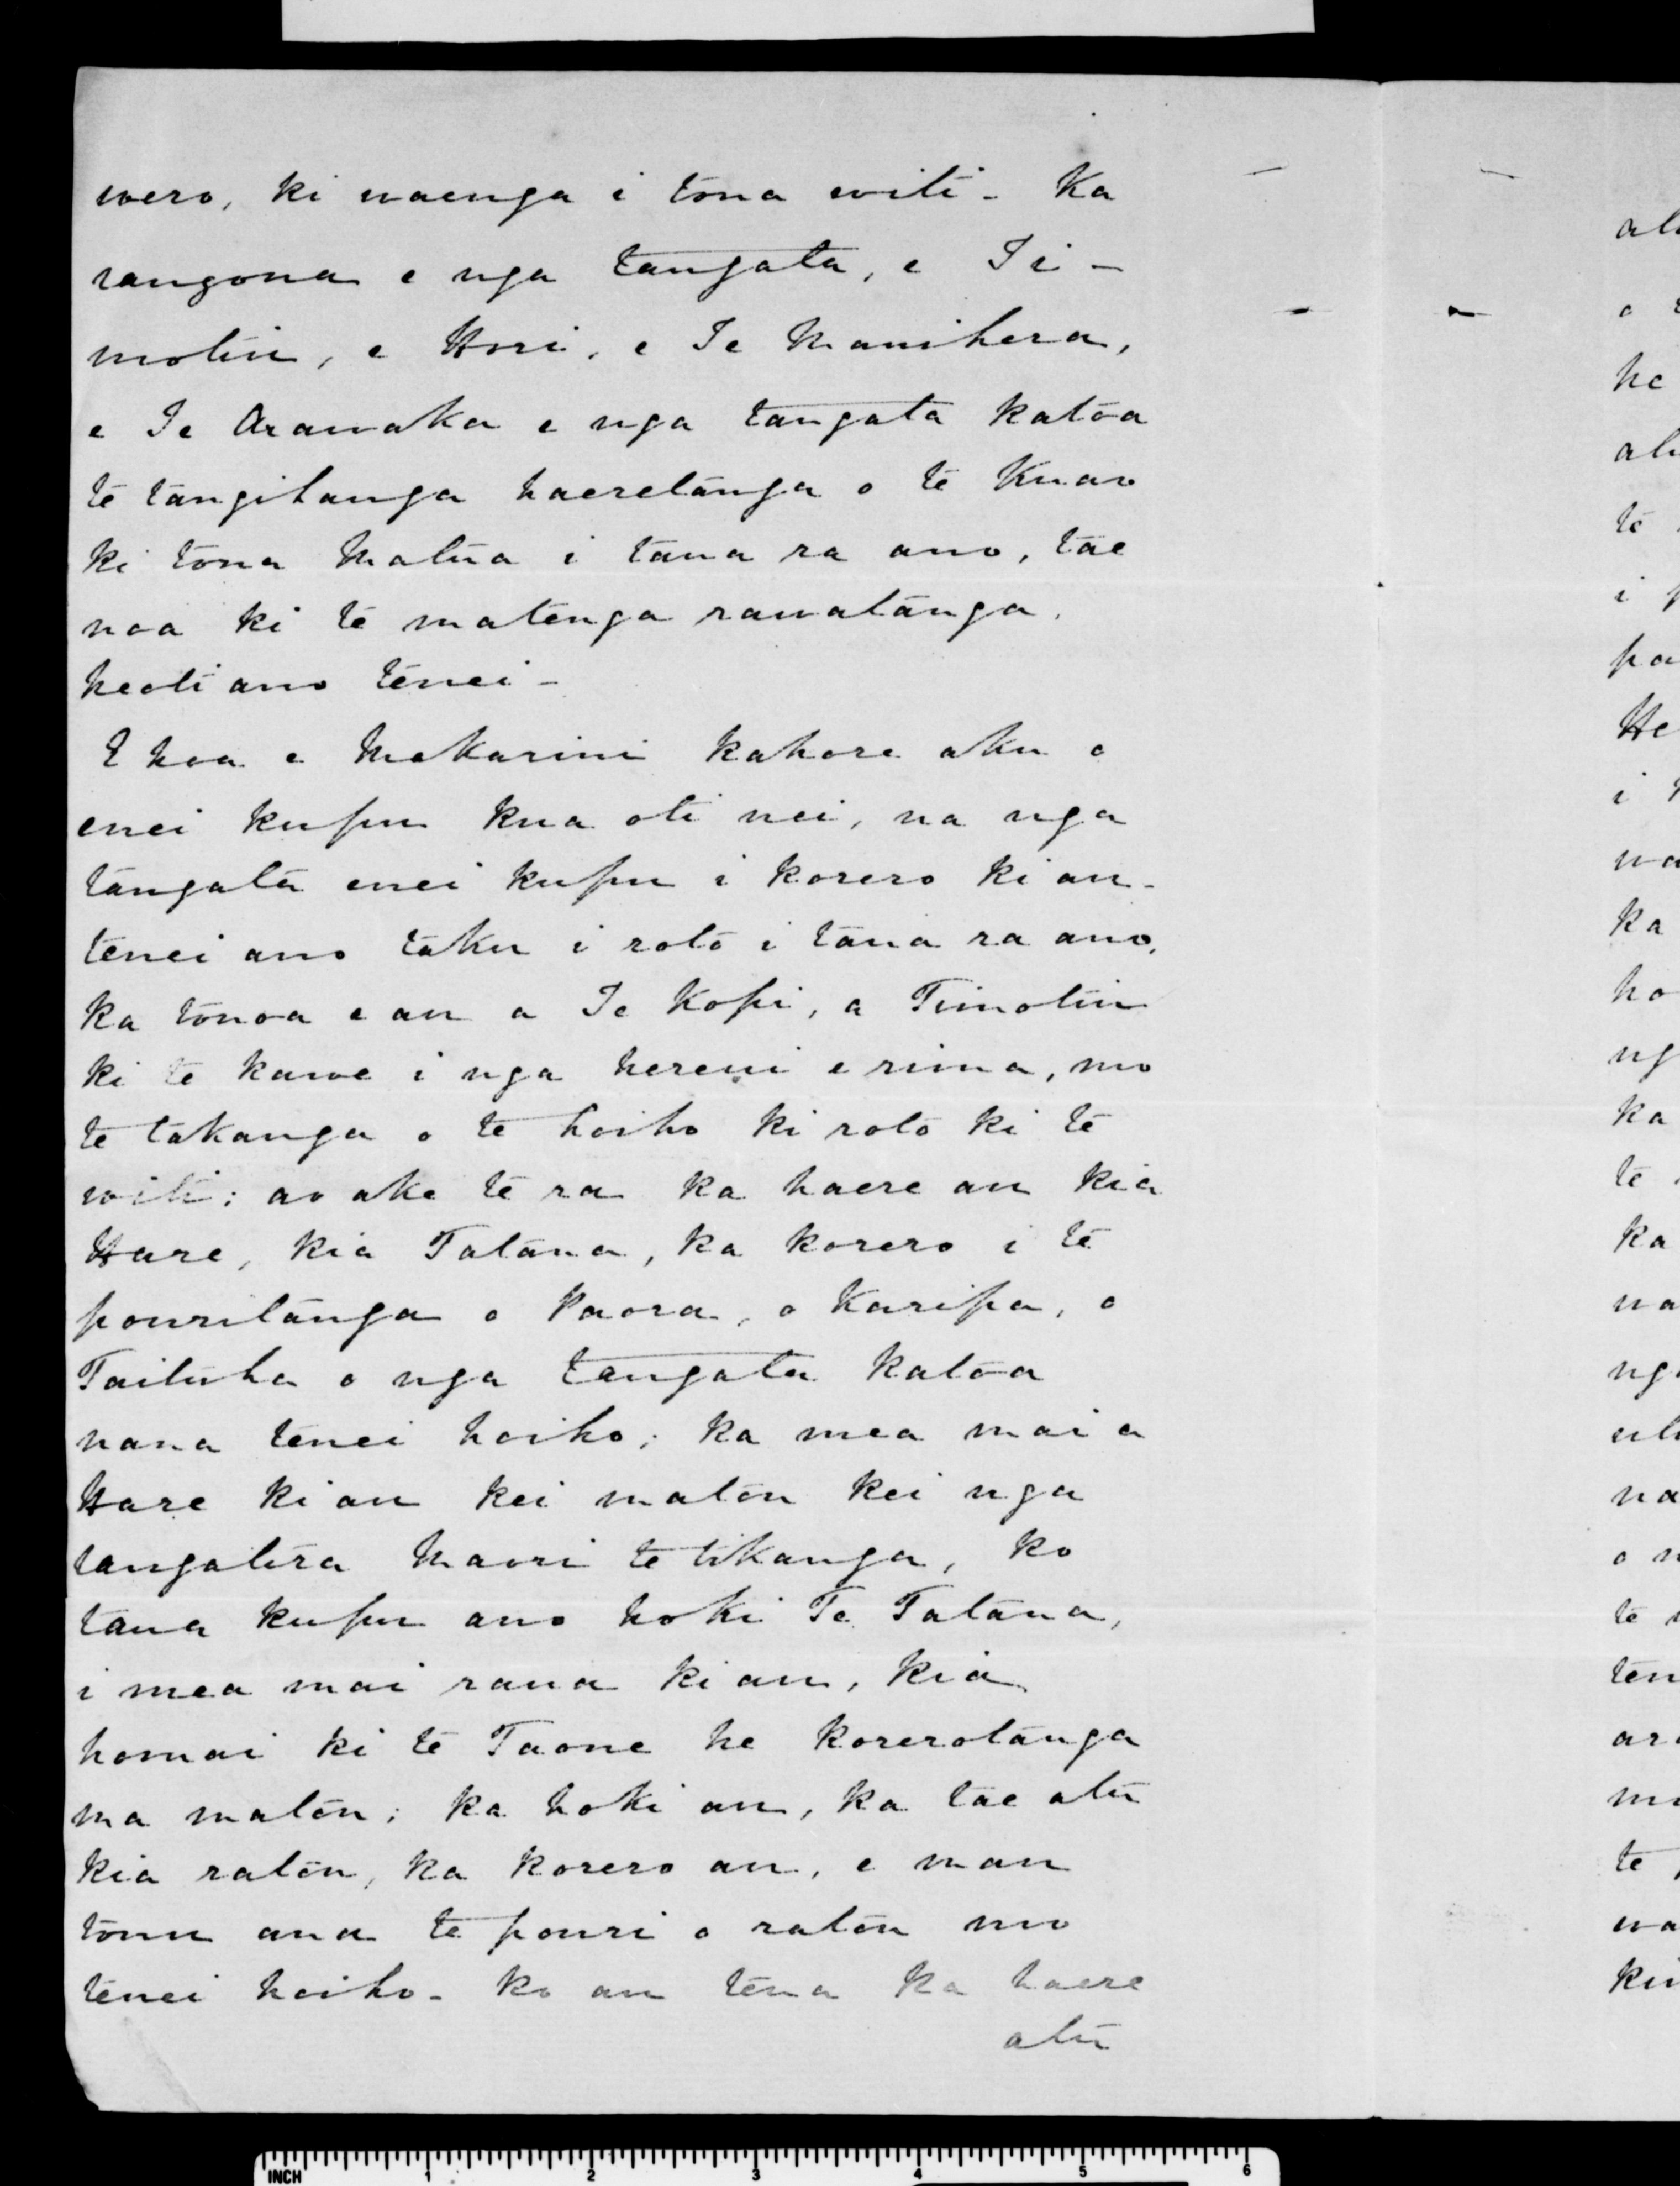 wero, ki waenga i tona witi - Ka
rangona e nga tangata, e Ti -
motiu, e Hori, e Te Manihera,
e Te Arawaka e nga tangata katoa
te tangihanga haeretanga o te Kuao
ki tona Matua i taua ra ano, tae
noa ki te matenga rawatanga,
heoti ano tenei -
E hoa e Makarini kahore aku o
enei kupu kua oti nei, na nga
tangata enei kupu i korero ki au -
tenei ano taku i roto i taua ra ano,
ka tonoa e au a Te Kopi, a Timotiu
ki te kawe i nga hereni e rima, mo
te takanga o te hoiho ki roto ki te
witi; ao ake te ra ka haere au kia
Hare, kia Tatana, ka korero i te
pouritanga o Paora, o Karipa, o
Taituha o nga tangata katoa
nana tenei hoiho; ka mea mai a
Hare ki au kei matou kei nga
rangatira Maori te tikanga, ko
tana kupu ano hoki Ta Tatana,
i mea mai raua ki au, kia
homai ki te Taone he korerotanga
ma matou; ka hoki au, ka tae atu
kia ratou, ka korero au, e mau
tonu ana te pouri o ratou mo
tenei hoiho - ko au tena ka haere
atu
INCH 1 2 3 4 5 6